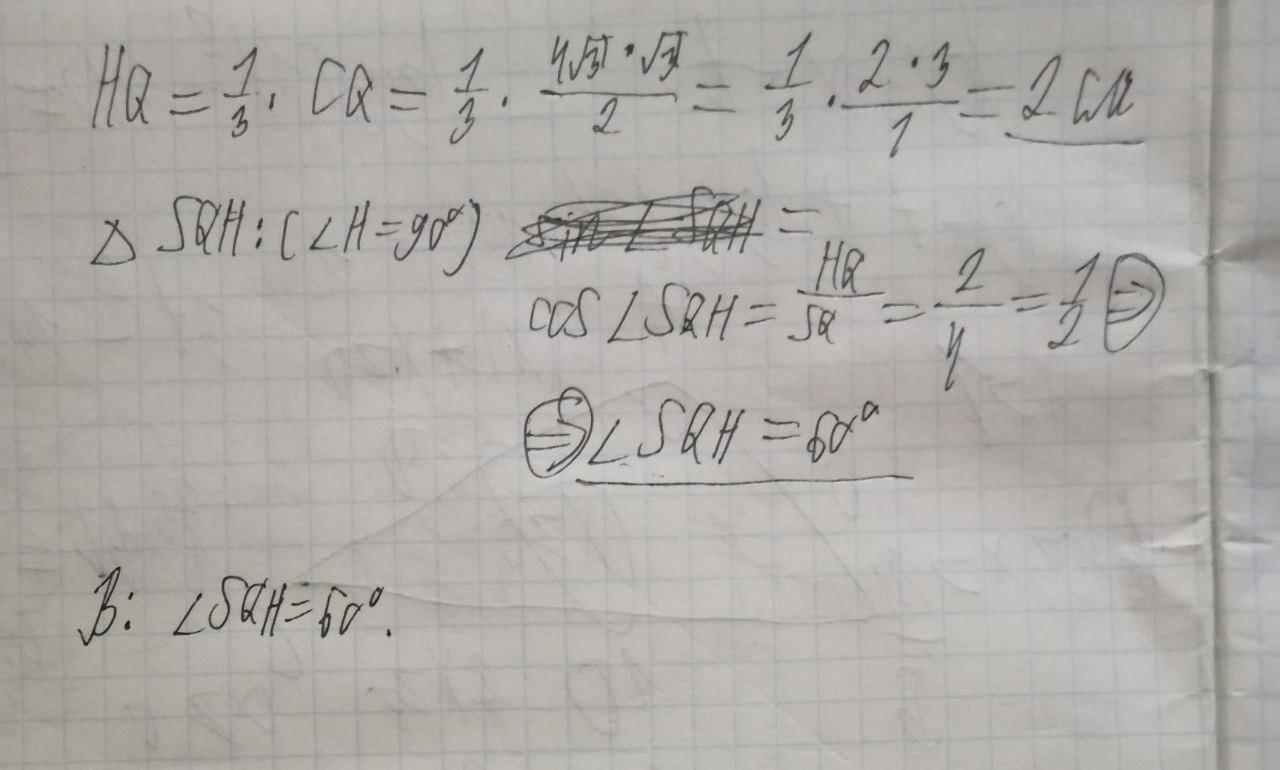 HQ = 1/3 · CQ = 1/3 · 4√3 · √3/2 = 1/3 · 2·3/1 = 2 см
△ SQH: (∠H=90°) sin ∠ SQH =
cos ∠SQH = HQ/SQ = 2/4 = 1/2 ⇒
⇒ ∠SQH = 60°
В: ∠SQH=60°.